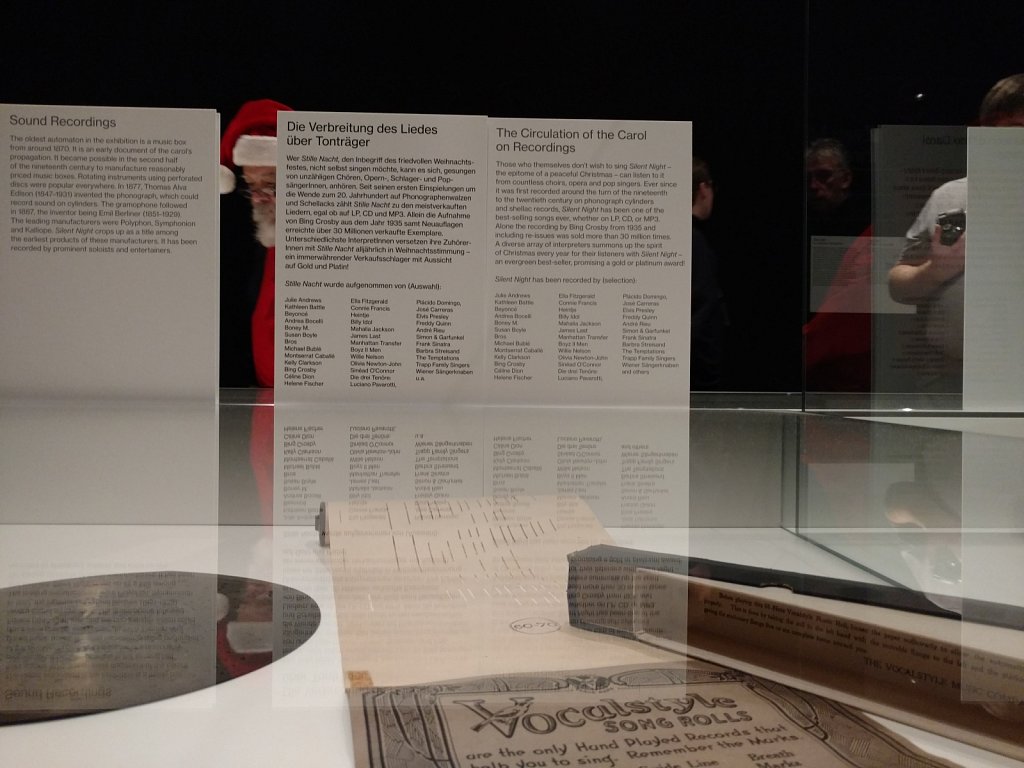 Sound Recordings
The oldest automaton in the exhibition is a music box
from around 1870. It is an early document of the carol's
propagation. It became possible in the second half
of the nineteenth century to manufacture reasonably
priced music boxes. Rotating instruments using perforated
discs were popular everywhere. In 1877, Thomas Alva
Edison (1847-1931) invented the phonograph, which could
record sound on cylinders. The gramophone followed
in 1887, the inventor being Emil Berliner (1851-1929).
The leading manufacturers were Polyphon, Symphonion
and Kalliope. Silent Night crops up as a title among
the earliest products of these manufacturers. It has been
recorded by prominent soloists and entertainers.
Die Verbreitung des Liedes
über Tonträger
Wer Stille Nacht, den Inbegriff des friedvollen Weihnachts-
festes, nicht selbst singen möchte, kann es sich, gesungen
von unzähligen Chören, Opern-, Schlager- und Pop-
sängerInnen, anhören. Seit seinen ersten Einspielungen um
die Wende zum 20. Jahrhundert auf Phonographenwalzen
und Schellacks zählt Stille Nacht zu den meistverkauften
Liedern, egal ob auf LP, CD und MP3. Allein die Aufnahme
von Bing Crosby aus dem Jahr 1935 samt Neuauflagen
erreichte über 30 Millionen verkaufte Exemplare.
Unterschiedlichste InterpretInnen versetzen ihre Zuhörer-
Innen mit Stille Nacht alljährlich in Weihnachtsstimmung –
ein immerwährender Verkaufsschlager mit Aussicht
auf Gold und Platin!
Stille Nacht wurde aufgenommen von (Auswahl):
Julie Andrews
Kathleen Battle
Beyoncé
Andrea Bocelli
Boney M.
Susan Boyle
Bros
Michael Bublé
Montserrat Caballé
Kelly Clarkson
Bing Crosby
Céline Dion
Helene Fischer
Ella Fitzgerald
Connie Francis
Heintje
Billy Idol
Mahalia Jackson
James Last
Manhattan Transfer
Boyz II Men
Willie Nelson
Olivia Newton-John
Sinéad O'Connor
Die drei Tenöre:
Luciano Pavarotti,
Plácido Domingo,
José Carreras
Elvis Presley
Freddy Quinn
André Rieu
Simon & Garfunkel
Frank Sinatra
Barbra Streisand
The Temptations
Trapp Family Singers
Wiener Sängerknaben
u.a.
The Circulation of the Carol
on Recordings
Those who themselves don't wish to sing Silent Night –
the epitome of a peaceful Christmas – can listen to it
from countless choirs, opera and pop singers. Ever since
it was first recorded around the turn of the nineteenth
to the twentieth century on phonograph cylinders
and shellac records, Silent Night has been one of the
best-selling songs ever, whether on LP, CD, or MP3.
Alone the recording by Bing Crosby from 1935 and
including re-issues was sold more than 30 million times.
A diverse array of interpreters summons up the spirit
of Christmas every year for their listeners with Silent Night –
an evergreen best-seller, promising a gold or platinum award!
Silent Night has been recorded by (selection):
Julie Andrews
Kathleen Battle
Beyoncé
Andrea Bocelli
Boney M.
Susan Boyle
Bros
Michael Bublé
Montserrat Caballé
Kelly Clarkson
Bing Crosby
Céline Dion
Helene Fischer
Ella Fitzgerald
Connie Francis
Heintje
Billy Idol
Mahalia Jackson
James Last
Manhattan Transfer
Boyz II Men
Willie Nelson
Olivia Newton-John
Sinéad O'Connor
Die drei Tenöre:
Luciano Pavarotti,
Plácido Domingo,
José Carreras
Elvis Presley
Freddy Quinn
André Rieu
Simon & Garfunkel
Frank Sinatra
Barbra Streisand
The Temptations
Trapp Family Singers
Wiener Sängerknaben
and others
THE VOCALSTYLE MUSIC
Vocalstyle
SONG ROLLS
are the only Hand Played Records that
help you to sing. Remember the Marks
Guide Line
Breath
Marks